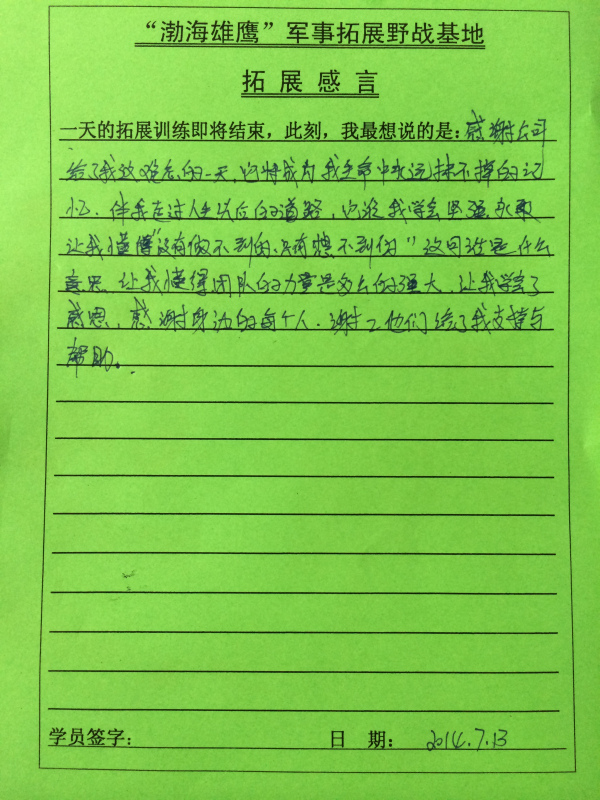 “渤海雄鹰”军事拓展野战基地
拓 展 感 言
一天的拓展训练即将结束，此刻，我最想说的是：感谢公司
给了我这难忘的一天，它将成为我生命中永远抹不掉的记
忆．伴我走过人生以后的道路，它让我学会坚强 勇敢
让我懂得“没有做不到的，只有想不到的”这句话是什么
意思．让我懂得团队的力量是多么的强大．让我学会了
感恩，感谢身边的每个人．谢谢他们给了我支持与
帮助。
学员签字： 日 期： 2014.7.13